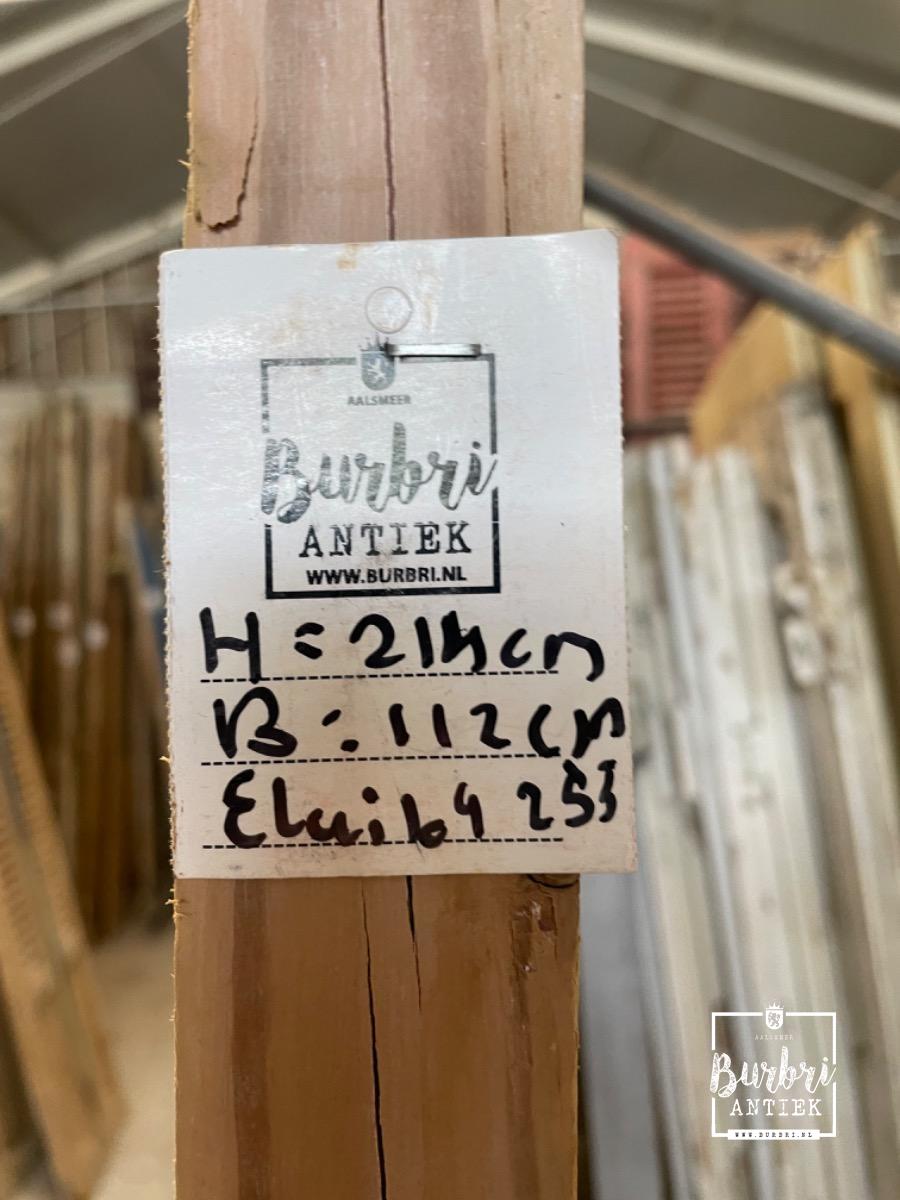 AALSMEER
Burbri
ANTIEK
WWW.BURBRI.NL
H = cm
B : 112 cm
255
AALSMEER
Burbri
ANTIEK
WWW.BURBRI.NL